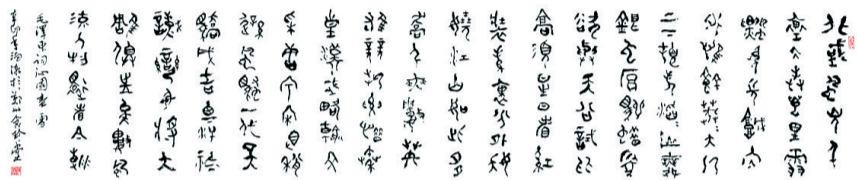 北國風光千
里冰封萬里雪
飄望長城內
外惟餘莽莽大河
上下頓失滔滔山舞
銀蛇原馳蠟象
欲與天公試比
高須晴日看紅
裝素裹分外妖
嬈江山如此多
嬌引無數英
雄競折腰惜秦
皇漢武略輸文
采唐宗宋祖稍
遜風騷一代天
驕成吉思汗祗
識彎弓射大
雕俱往矣數風
流人物還看今朝
毛澤東詞沁園春雪